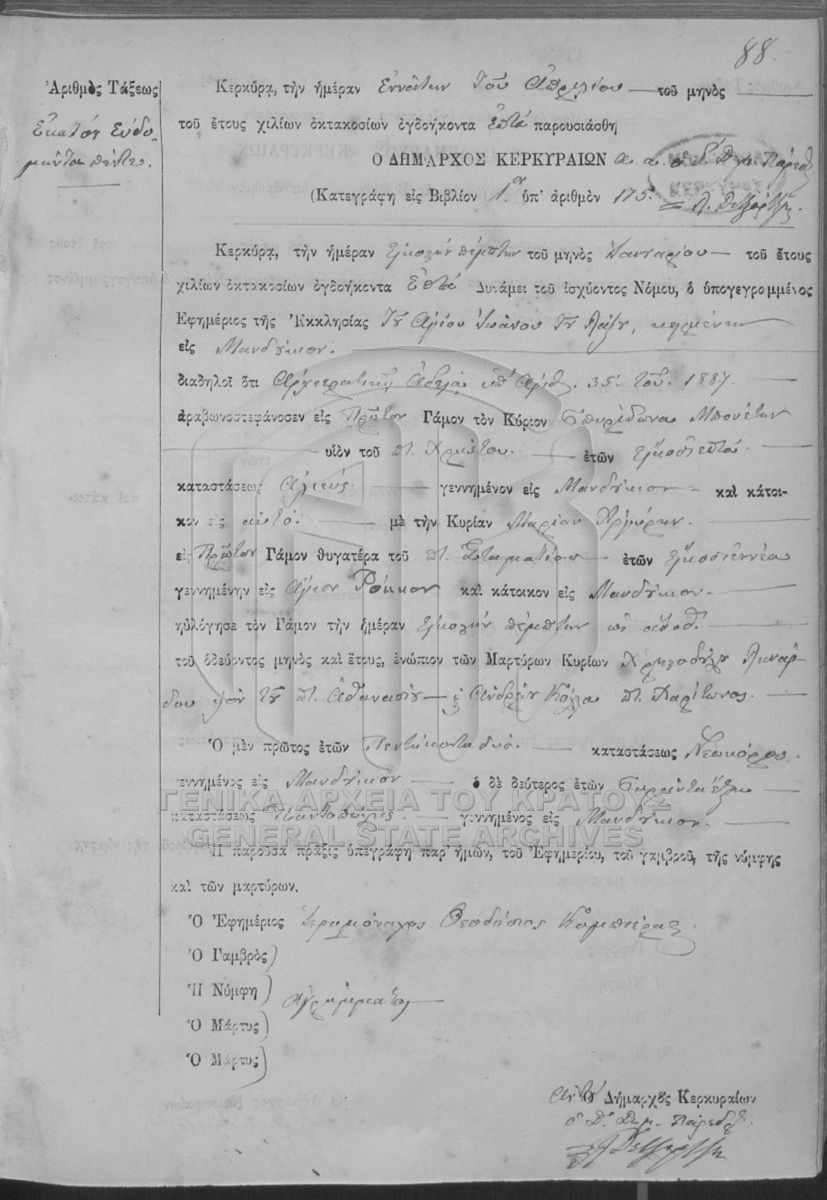 88.
Ἀριθμὸς Τάξεως
Ἑκατὸν Εὐδο-
μήντα πέντε.
Κερκύρᾳ, τὴν ἡμέραν Ἐννάτην Τοῦ Ἀπριλίου — τοῦ μηνὸς
τοῦ ἔτους χιλίων ὀκτακοσίων ὀγδοήκοντα ἑπτὰ παρουσιάσθη
Ὁ ΔΗΜΑΡΧΟΣ ΚΕΡΚΥΡΑΙΩΝ
(Κατεγράφη εἰς Βιβλίον 1ον ὑπ' ἀριθμὸν 175.
Κερκύρᾳ, τὴν ἡμέραν Εἰκοστὴν πέμπτην τοῦ μηνὸς Ἰανουαρίου — τοῦ ἔτους
χιλίων ὀκτακοσίων ὀγδοήκοντα ἑπτὰ Δυνάμει τοῦ ἰσχύοντος Νόμου, ὁ ὑπογεγραμμένος
Ἐφημέριος τῆς Ἐκκλησίας Τοῦ Ἁγίου Ἰωάνου Τοῦ κειμένης
εἰς Μανδύκιον.
διαδηλοῖ ὅτι Ἀρχιερατικῆς Ἀδείας ὑπ' Ἀριθ. 35. τοῦ 1887 —
ἀραβωνοστεφάνοσεν εἰς Πρῶτον Γάμον τὸν Κύριον Σπυρίδωνα Μπονέτον
υἱὸν τοῦ πτ. Χρήστου. — ἐτῶν Εἰκοσιεπτὰ
καταστάσεως Ἁλιεὺς — γεννημένον εἰς Μανδύκιον — καὶ κάτοι-
κον εἰς αὐτό. — μὲ τὴν Κυρίαν Μαρίαν Ἀργύρην —
εἰς Πρῶτον Γάμον θυγατέρα τοῦ πτ. Σταματίου — ἐτῶν εἰκοσιεννέα
γεννημένην εἰς Ἅγιον Ρόκκον καὶ κάτοικον εἰς Μανδύκιον. —
ηὐλόγησε τὸν Γάμον τὴν ἡμέραν Εἰκοστὴν πέμπτην
τοῦ ὁδεύοντος μηνὸς καὶ ἔτους, ἐνώπιον τῶν Μαρτύρων Κυρίων Χριστοδούλου Λινάρ-
δου υἱὸν τοῦ πτ. Ἀθανασίου — Ἀνδρέου Κόλλα πτ. Χαρίτωνος. —
Ὁ μὲν πρῶτος ἐτῶν Πεντήκοντα δύο. — καταστάσεως Νεωκόρος.
γεννημένος εἰς Μανδύκιον — ὁ δὲ δεύτερος ἐτῶν Σαράντα ἕξ —
καταστάσεως Παντοπώλης — γεννημένος εἰς Μανδύκιον. —
Ἡ παροῦσα πρᾶξις ὑπεγράφη παρ' ἡμῶν, τοῦ Ἐφημερίου, τοῦ γαμβροῦ, τῆς νύμφης
καὶ τῶν μαρτύρων.
Ὁ Ἐφημέριος Ἱερομόναχος Θεοδόσιος
Ὁ Γαμβρὸς)
Ἡ Νύμφη) ἀγράμματοι —
Ὁ Μάρτυς)
Ὁ Μάρτυς)
Ὁ Δήμαρχος Κερκυραίων
ὁ Δ' Δημ. Πάρεδρ.
ΓΕΝΙΚΑ ΑΡΧΕΙΑ ΤΟΥ ΚΡΑΤΟΥΣ
GENERAL STATE ARCHIVES